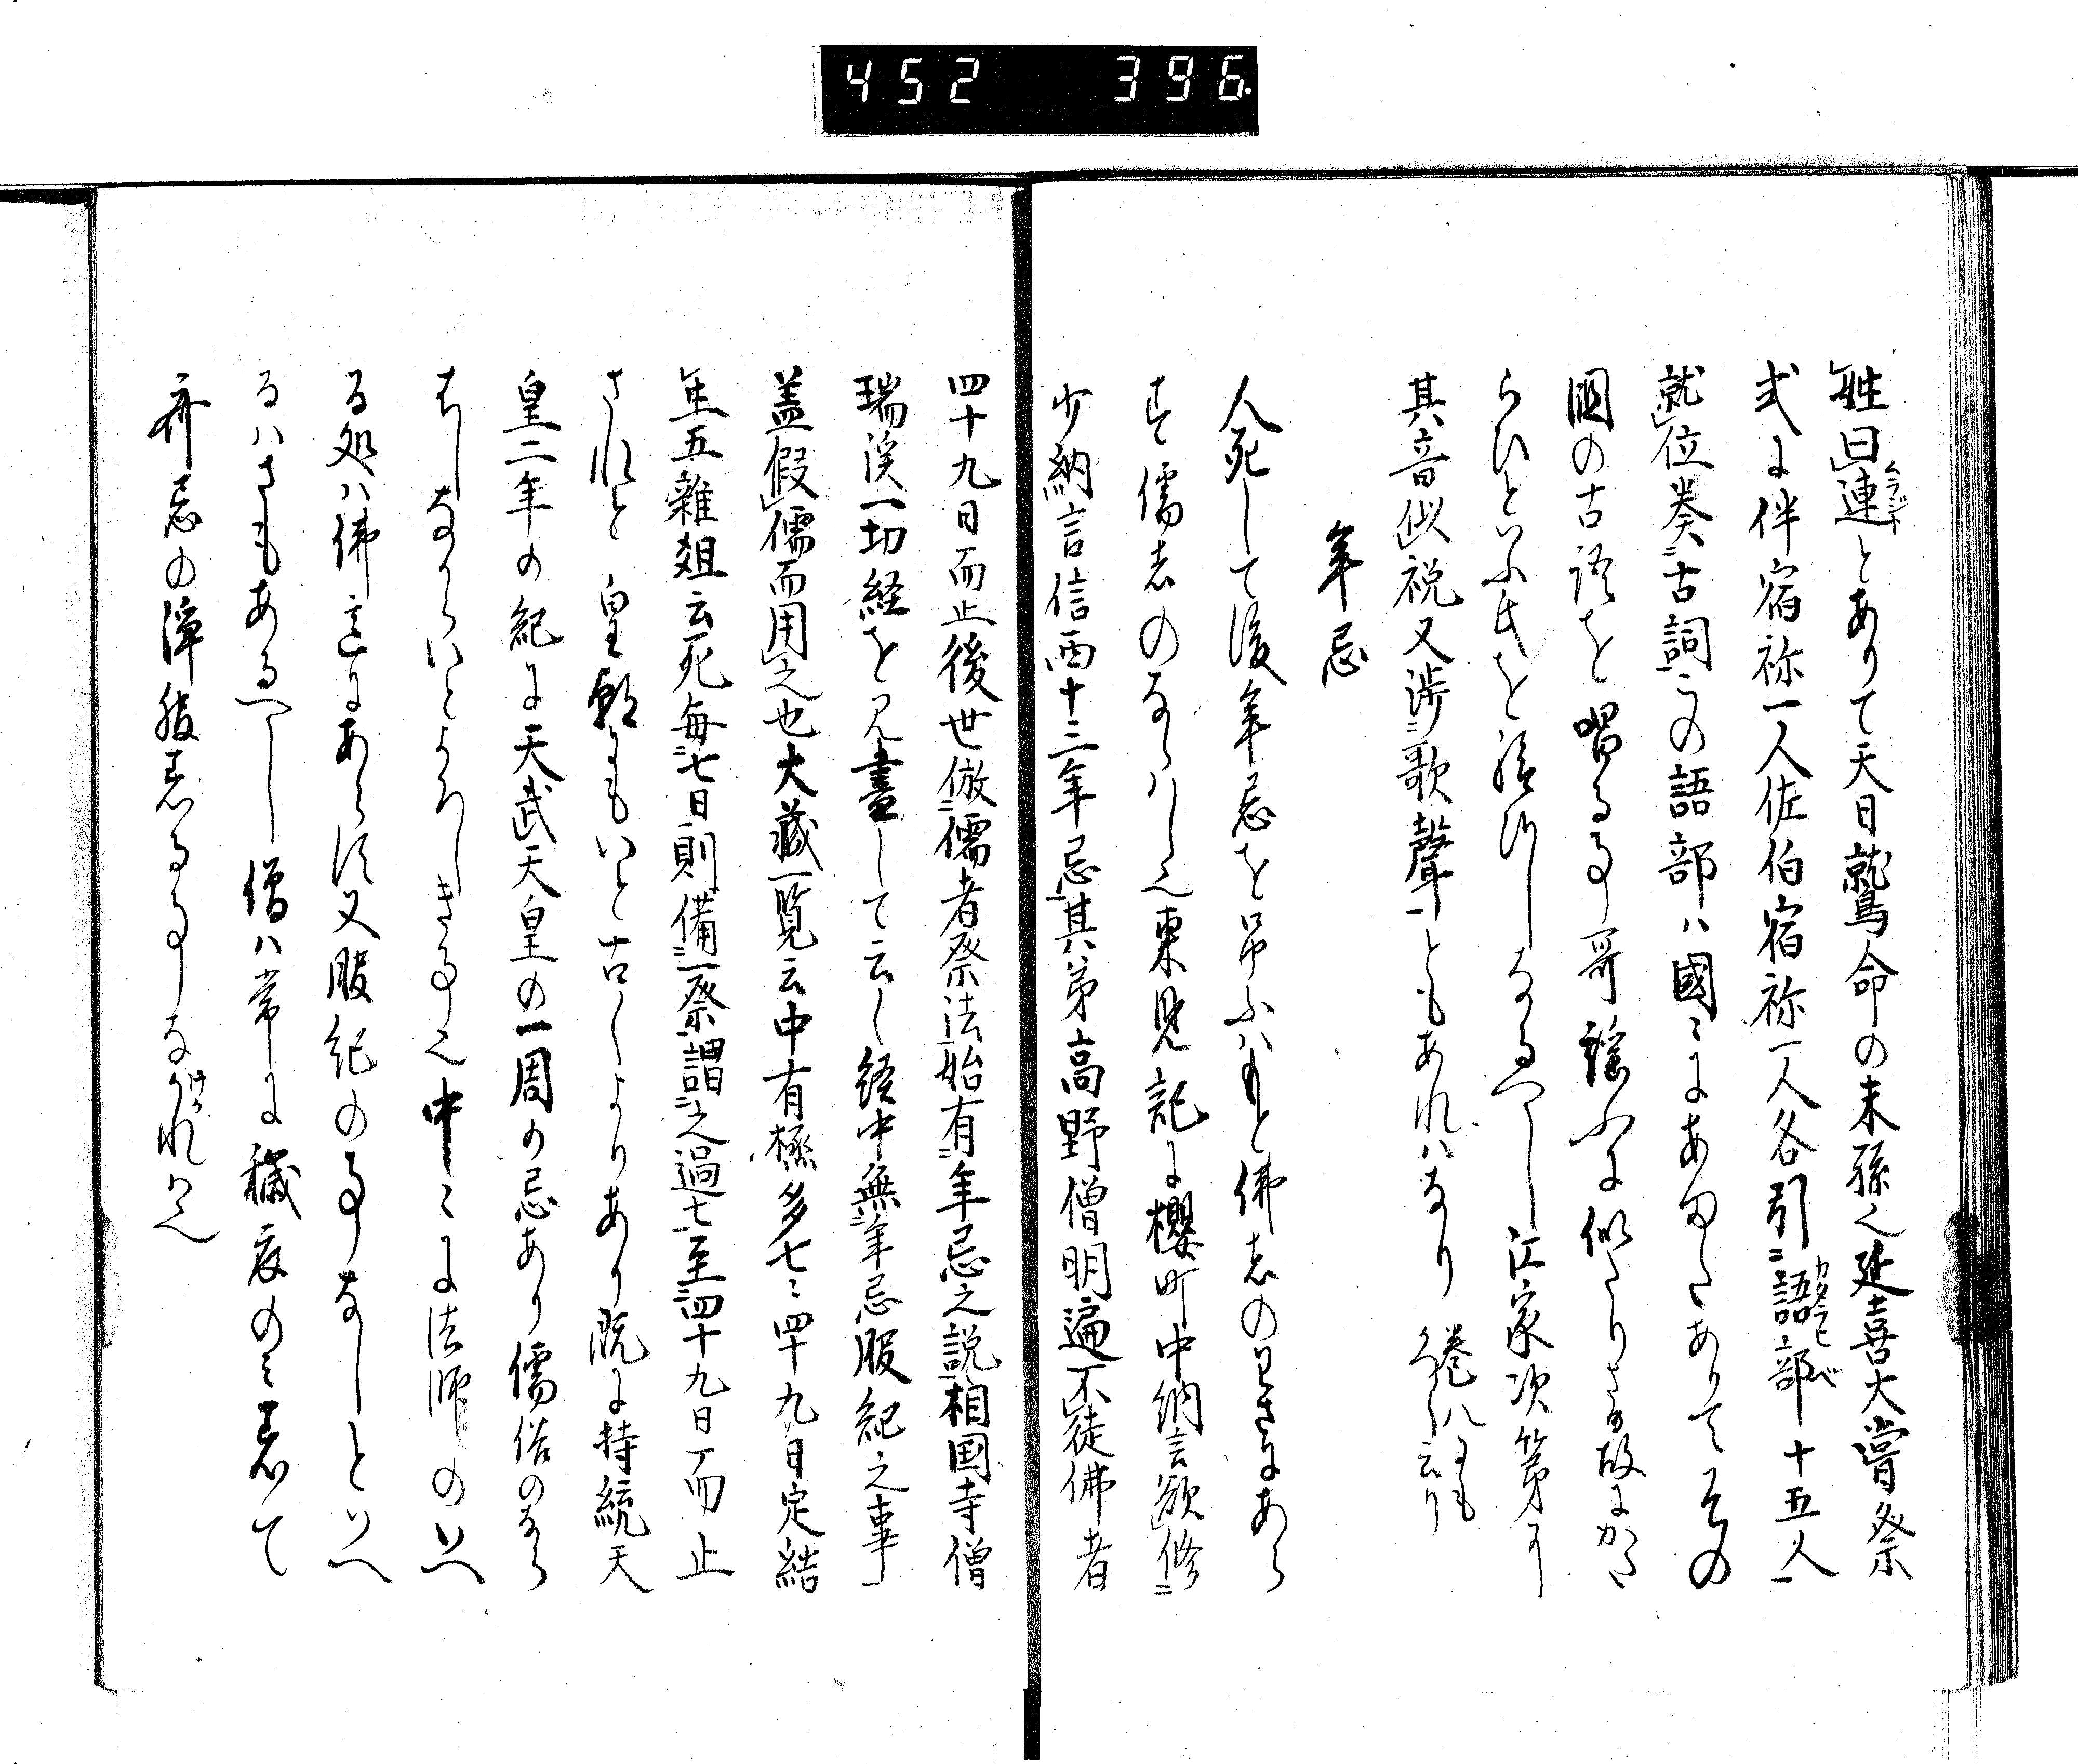 452 396.
姓曰連とありて天日鷲命の末孫也延喜大嘗祭
ムラジト
式に伴宿祢一人佐伯宿祢一人各引語部十五人
カタラヒベ
就位奏古詞この語部ハ國〻にあまたありてその
国の古語を唱る事哥謡ふに似たりさる故にかた
らひといふ氏を給ひしなるへし江家次第に
其音似祝又渉歌聲ともあれハなり 巻八にも
くはしく云り
年忌
人死して後年忌を吊ふハもと佛者のわさにあら
す儒者のならハし也東見記に櫻町中納言欲修
少納言信西十三年忌其弟高野僧明遍不徒佛者
四十九日而止後世倣儒者祭法始有年忌之説相国寺僧
瑞渓一切経を見盡して云く経中無年忌服紀之事
盖假儒而用之也大蔵一覧云中有極多七〻四十九日定結
生五雜爼云死毎七日則備一祭謂之過七至四十九日而止
されと 皇朝にもいと古くよりあり既に持統天
皇二年の紀に天武天皇の一周の忌あり儒俗のなら
はしなからいとよろしき事也中〻に法師のいへ
る処ハ佛意にあらす又服紀の事なしといへ
るハさもあるへし僧ハ常に穢衣のミ着て
斉忌の浄服着る事しなけれハ也